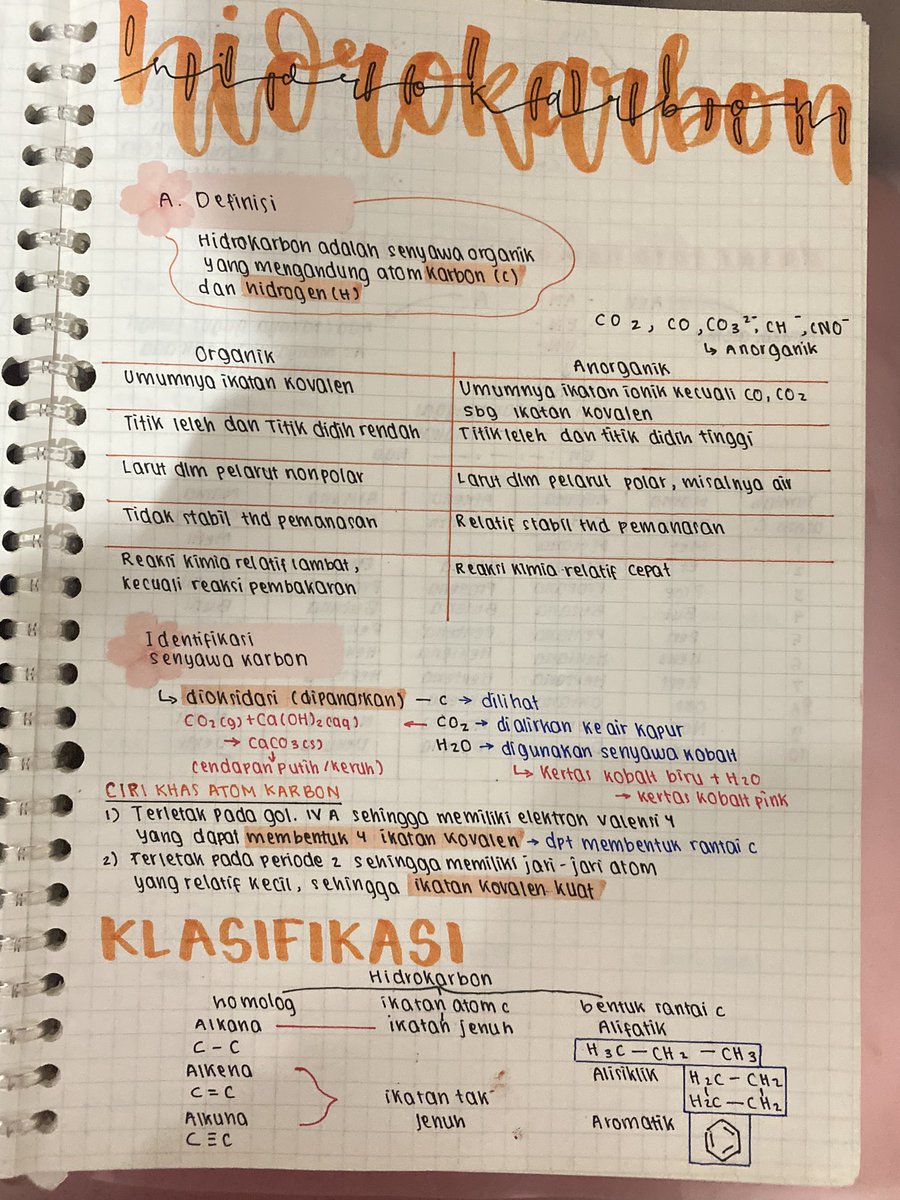 hidrokarbon
hidrokarbon
A. Definisi
Hidrokarbon adalah senyawa organik
yang mengandung atom karbon (C)
dan hidrogen (H)
CO2, CO, CO3²⁻, CH⁻, CNO⁻
↳ Anorganik
Organik
Anorganik
Umumnya ikatan kovalen
Umumnya ikatan ionik kecuali CO, CO2
sbg ikatan kovalen
Titik leleh dan Titik didih rendah
Titik leleh dan titik didih tinggi
Larut dlm pelarut nonpolar
Larut dlm pelarut polar, misalnya air
Tidak stabil thd pemanasan
Relatif stabil thd pemanasan
Reaksi kimia relatif lambat,
kecuali reaksi pembakaran
Reaksi kimia relatif cepat
Identifikasi
senyawa karbon
↳ dioksidasi (dipanaskan) — C → dilihat
CO2(g) + Ca(OH)2(aq) ← CO2 → dialirkan ke air kapur
→ CaCO3(s)
H2O → digunakan senyawa kobalt
(endapan putih/keruh)
↳ kertas kobalt biru + H2O
→ kertas kobalt pink
CIRI KHAS ATOM KARBON
1) Terletak pada gol. IV A sehingga memiliki elektron valensi 4
yang dapat membentuk 4 ikatan kovalen → dpt membentuk rantai C
2) Terletak pada periode 2 sehingga memiliki jari-jari atom
yang relatif kecil, sehingga ikatan kovalen kuat
KLASIFIKASI
Hidrokarbon
homolog
ikatan atom C
bentuk rantai C
Alkana
ikatan jenuh
Alifatik
C - C
H3C — CH2 — CH3
Alkena
Alisiklik
C = C
ikatan tak
jenuh
H2C — CH2
H2C — CH2
Alkuna
Aromatik
C ≡ C